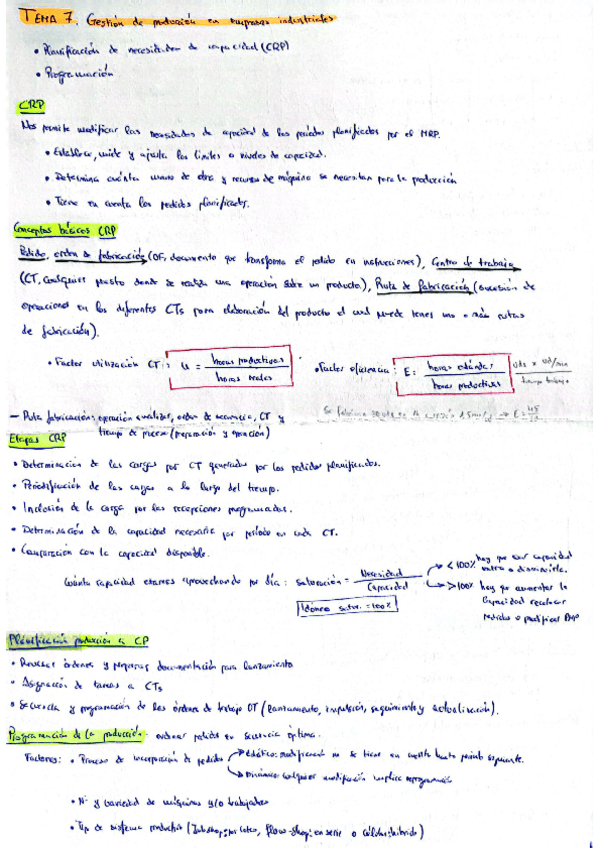 TEMA 7. Gestión de producción en empresas industriales
• Planificación de necesidades de capacidad (CRP)
• Programación
CRP
Nos permite modificar las necesidades de capacidad de los periodos planificados por el MRP.
• Establece, mide y ajusta los límites o niveles de capacidad.
• Determina cuánta mano de obra y recursos de máquina se necesitan para la producción
• Tiene en cuenta los pedidos planificados.
Conceptos básicos CRP
Pedido, orden de fabricación (OF, documento que transforma el pedido en instrucciones), Centro de trabajo
(CT, cualquier puesto donde se realiza una operación sobre un producto), Ruta de fabricación (sucesión de
operaciones en los diferentes CTs para elaboración del producto el cual puede tener uno o más rutas
de fabricación).
• Factor utilización CT: U = horas productivas / horas reales
• Factor eficiencia: E = horas estándar / horas productivas
— Ruta fabricación: operación a realizar, orden de secuencia, CT y
tiempo de proceso (preparación y operación)
Etapas CRP
• Determinación de las cargas por CT generadas por los pedidos planificados.
• Periodificación de las cargas a lo largo del tiempo.
• Inclusión de la carga por las recepciones programadas.
• Determinación de la capacidad necesaria por periodo en cada CT.
• Comparación con la capacidad disponible.
Cuánta capacidad estamos aprovechando por día: saturación = Necesidad / Capacidad
<100% hay que usar capacidad extra o disminuirla.
>100% hay que aumentar la capacidad recolocar pedidos o modificar
Idóneo satur. = 100%
Planificación producción a CP
• Revisar órdenes y preparar documentación para lanzamiento
• Asignación de tareas a CTs
• Secuencia y programación de las órdenes de trabajo OT (lanzamiento, impulsión, seguimiento y actualización).
Programación de la producción: ordenar pedidos en secuencia óptima.
Factores: • Proceso de incorporación de pedidos
Estático: modificación no se tiene en cuenta hasta periodo siguiente.
Dinámico: cualquier modificación implica reprogramación
• Nº y variedad de máquinas y/o trabajados
• Tipo de sistema productivo (Job-shop: por lotes, flow-shop: en serie o híbrido)